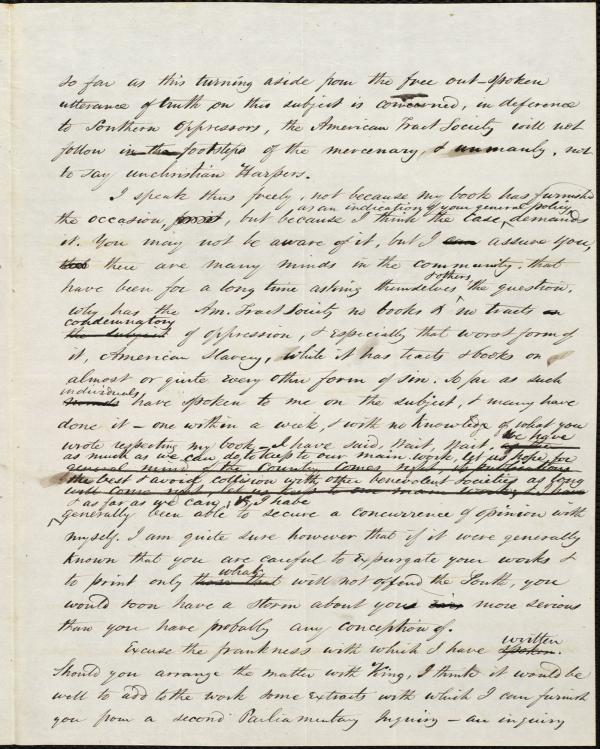 so far as this turning aside from the free out-spoken
utterance of truth on this subject is concerned, in deference
to Southern oppressors, the American Tract Society will not
follow in the footsteps of the mercenary, & unmanly, not
to say unchristian Harpers.
I speak thus freely, not because my book has furnished
as an indication of your general policy
the occasion, but because I think the case demands
it. You may not be aware of it, but I can assure you,
that there are many minds in the community, that
& others
have been for a long time asking themselves the question,
why has the Am. Tract Society no books & no tracts on
condemnatory
the subject of oppression, & especially that worst form of
it, American Slavery, while it has tracts & books on
almost or quite every other form of sin. So far as such
individuals
minds have spoken to me on the subject, & many have
done it – one within a week, & with no knowledge of what you
wrote respecting my book – I have said, wait, wait,
we have
as much as we can do to keep to our main work, let us hope, for
general mind of the country comes right, its publications
the best & avoid collision with other benevolent societies as long
will come right let us keep to our main work, & I have
& as far as we can, & I have
generally been able to secure a concurrence of opinion with
myself. I am quite sure however that if it were generally
known that you are careful to expurgate your works &
what
to print only those that will not offend the South, you
would soon have a storm about you more serious
than you have probably any conception of.
written
Excuse the frankness with which I have spoken.
Should you arrange the matter with King, I think it would be
well to add to the work some extracts with which I can furnish
you from a second Parliamentary Inquiry – an inquiry